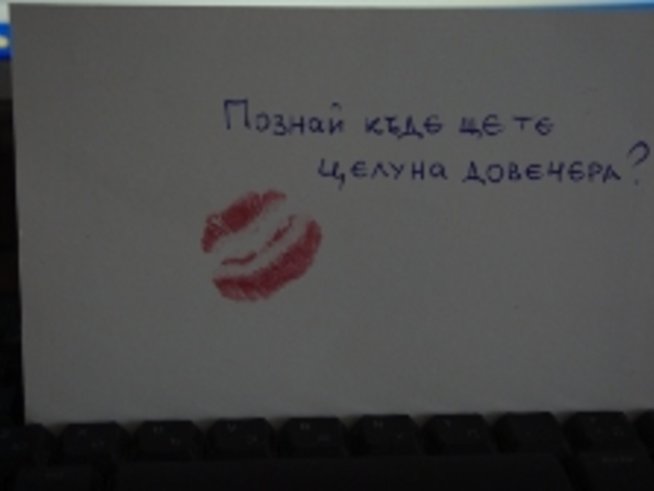 Познай къде ще те
целуна довечера?